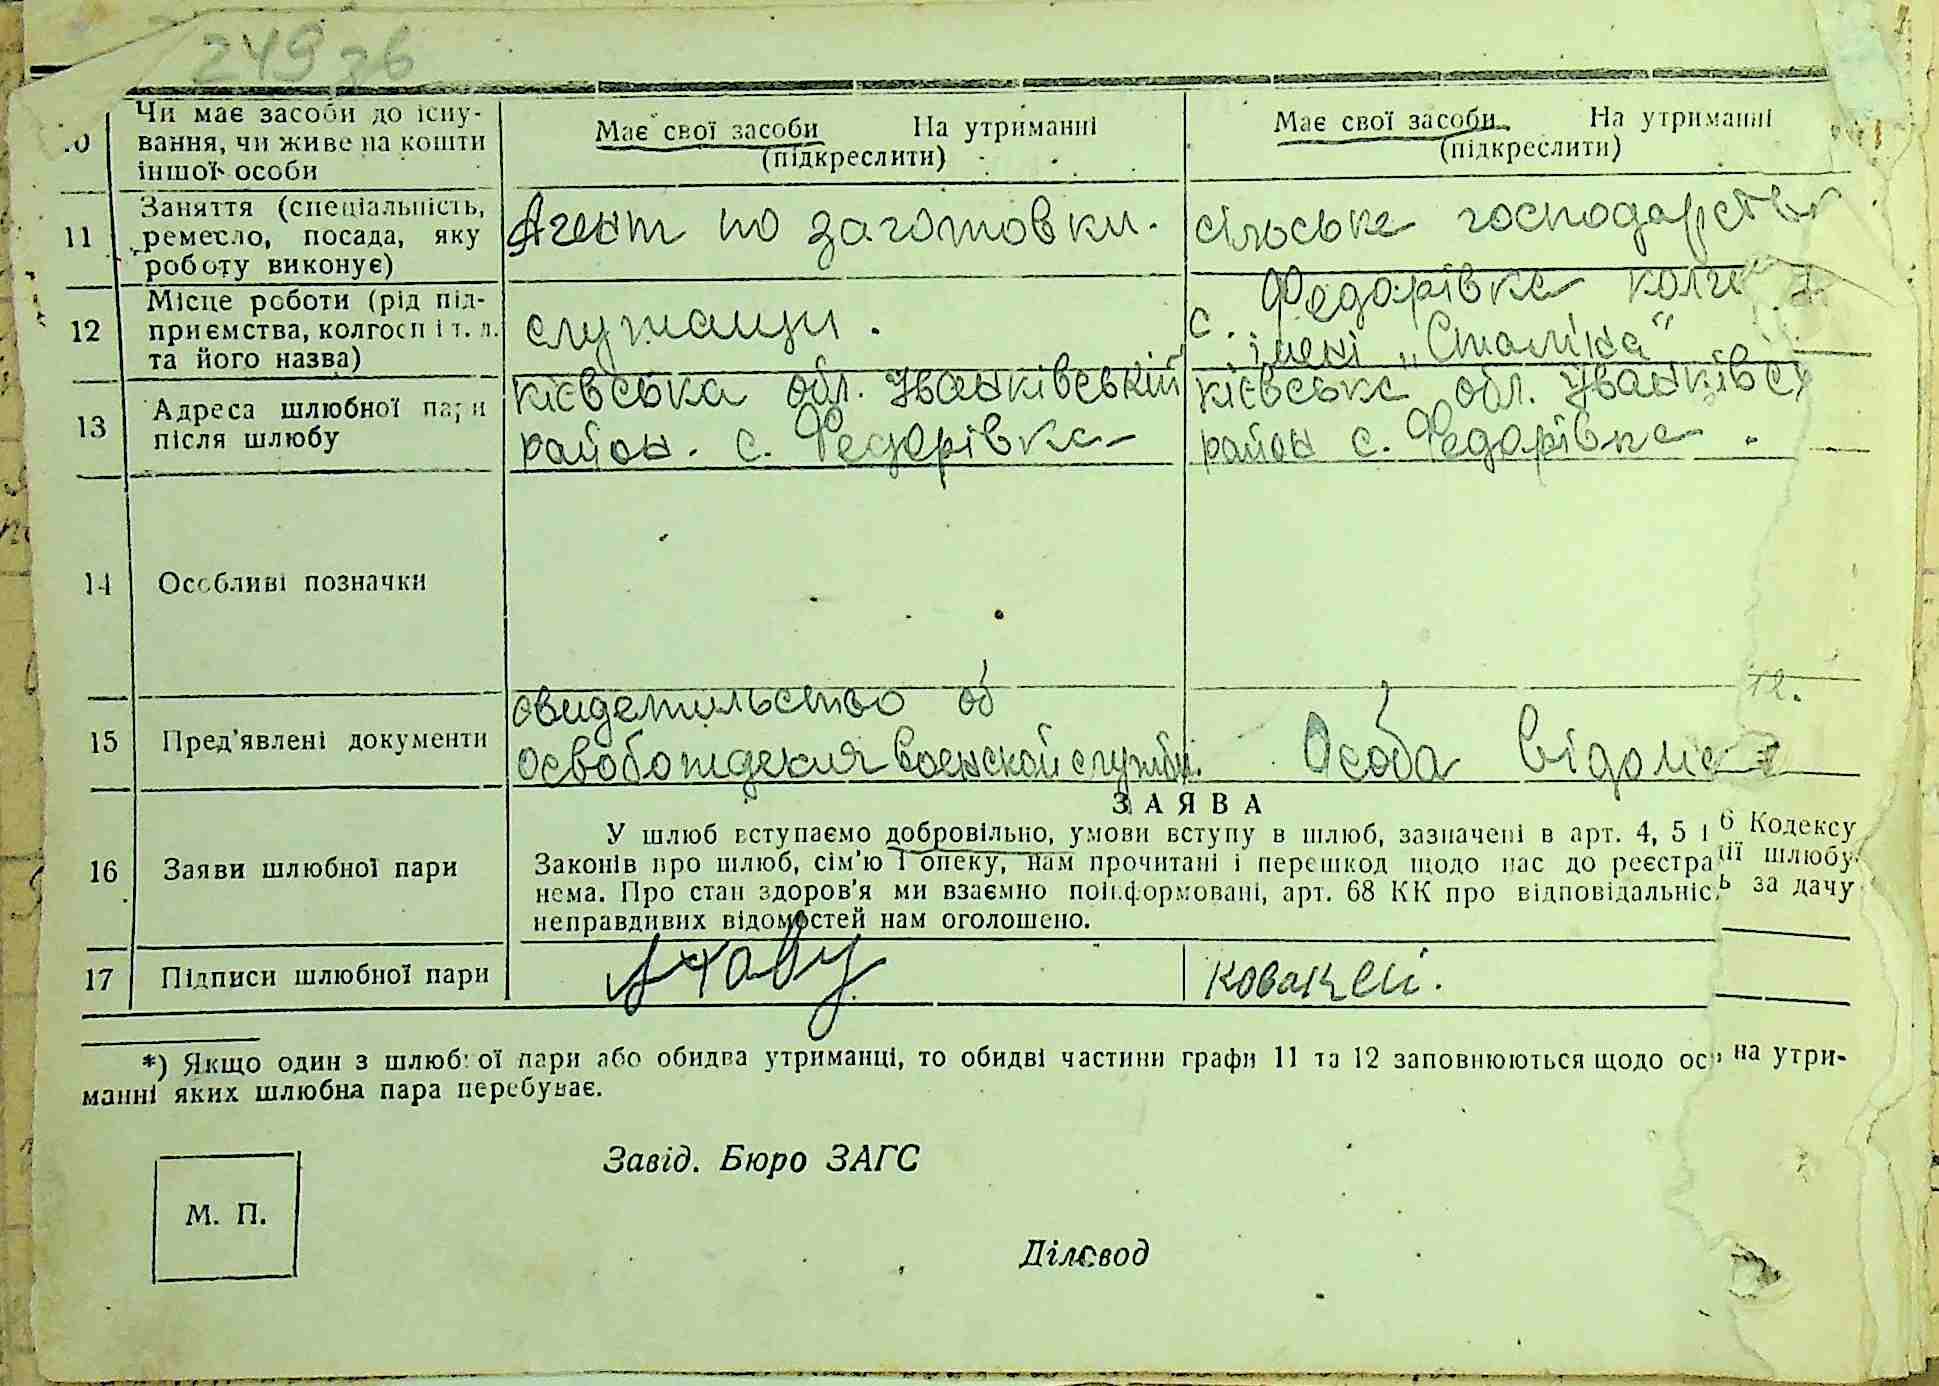 249 зв
10 Чи має засоби до існу-
вання, чи живе на кошти
іншої особи
Має свої засоби На утриманні
(підкреслити)
Має свої засоби На утриманні
(підкреслити)
11 Заняття (спеціальність,
ремесло, посада, яку
роботу виконує)
Агент по заготовки.
сільське господарство
12 Місце роботи (рід під-
приємства, колгосп і т. д.
та його назва)
служащи.
с. Федорівка
імені „Сталіна“
13 Адреса шлюбної пари
після шлюбу
кієвська обл. Іванківський
район. с. Федорівка
кієвська обл. Іванківсь
район с. Федорівка.
14 Особливі позначки
15 Пред'явлені документи
свидетильство об
освобождения воєнской службы.
Особа відома
16 Заяви шлюбної пари
ЗАЯВА
У шлюб вступаємо добровільно, умови вступу в шлюб, зазначені в арт. 4, 5 і 6 Кодексу
Законів про шлюб, сім'ю і опеку, нам прочитані і перешкод щодо нас до реєстрації шлюбу
нема. Про стан здоров'я ми взаємно поінформовані, арт. 68 КК про відповідальність за дачу
неправдивих відомостей нам оголошено.
17 Підписи шлюбної пари
*) Якщо один з шлюбної пари або обидва утриманці, то обидві частини графи 11 та 12 заповнюються щодо ос на утри-
манні яких шлюбна пара перебуває.
Завід. Бюро ЗАГС
М. П.
Діловод